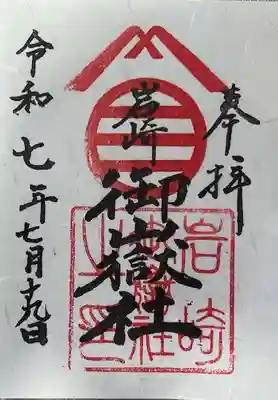 奉拝
岩崎
御嶽社
岩崎
御嶽社
之印
令和七年七月十九日